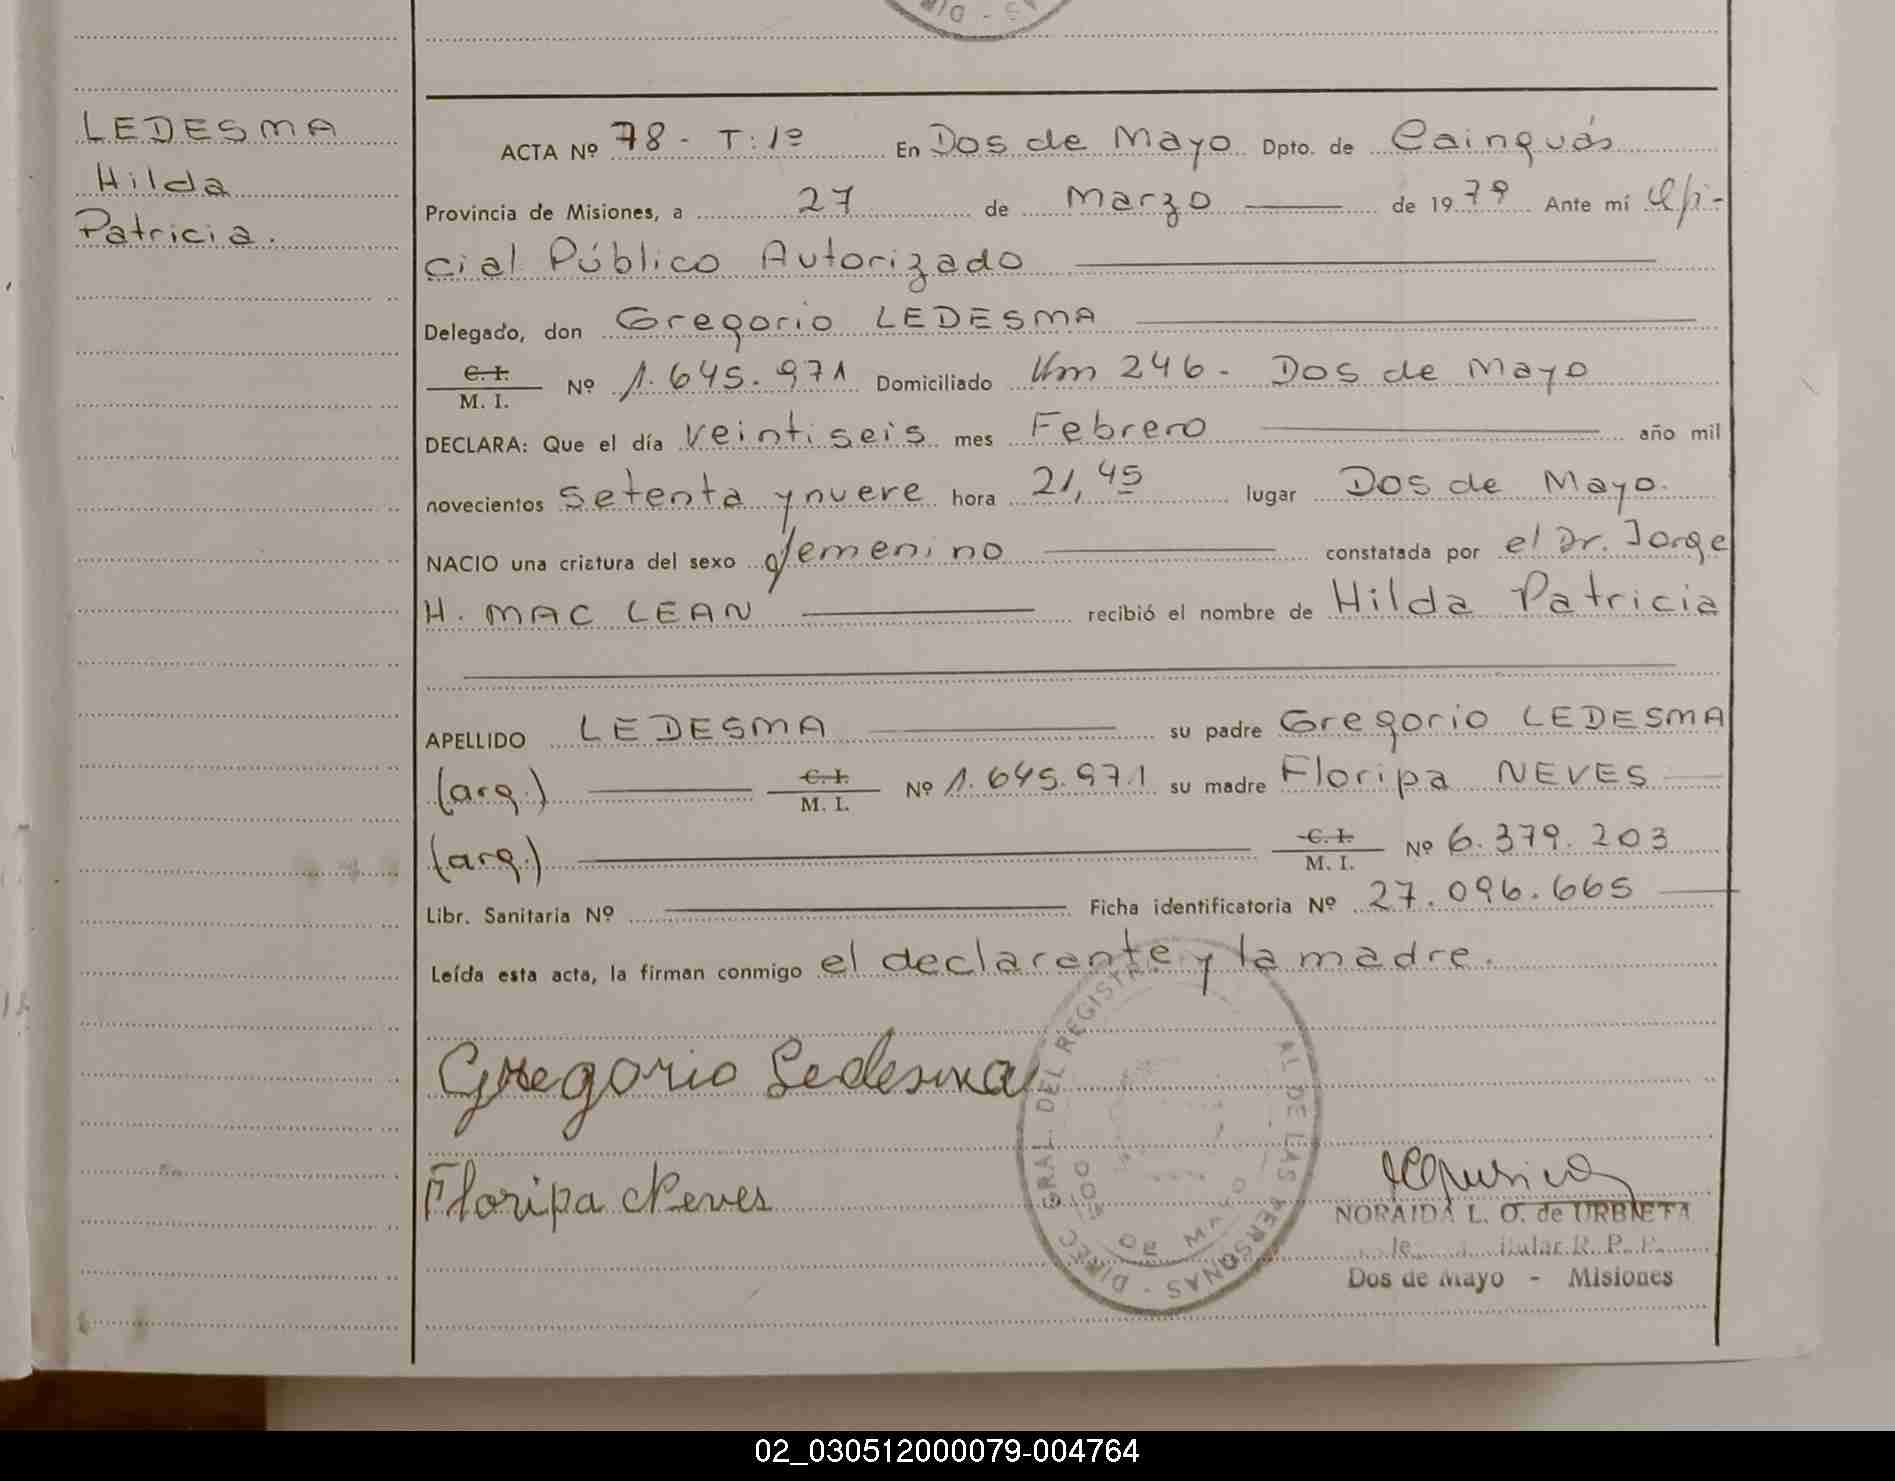 LEDESMA
Hilda
Patricia.
ACTA Nº 78 - T: 1º En Dos de Mayo Dpto. de Cainguás
Provincia de Misiones, a 27 de Marzo de 1979 Ante mí Ofi-
cial Público Autorizado
Delegado, don Gregorio LEDESMA
C. I.
M. I. Nº 1.645.971 Domiciliado Km 246 - Dos de Mayo
DECLARA: Que el día veintiseis mes Febrero año mil
novecientos setenta y nueve hora 21,45 lugar Dos de Mayo.
NACIO una criatura del sexo femenino constatada por el Dr. Jorge
H. MAC LEAN recibió el nombre de Hilda Patricia
APELLIDO LEDESMA su padre Gregorio LEDESMA
(arg.) C. I.
M. I. Nº 1.645.971 su madre Floripa NEVES
(arg.) C. I.
M. I. Nº 6.379.203
Libr. Sanitaria Nº Ficha identificatoria Nº 27.096.665
Leída esta acta, la firman conmigo el declarante y la madre.
Gregorio Ledesma
Floripa Neves
DIREC GRAL. DEL REGISTR AL DE LAS PERSONAS
DOS DE MAYO
NORAIDA L. O. de URBIETA
R. P. P.
Dos de Mayo - Misiones
02_030512000079-004764